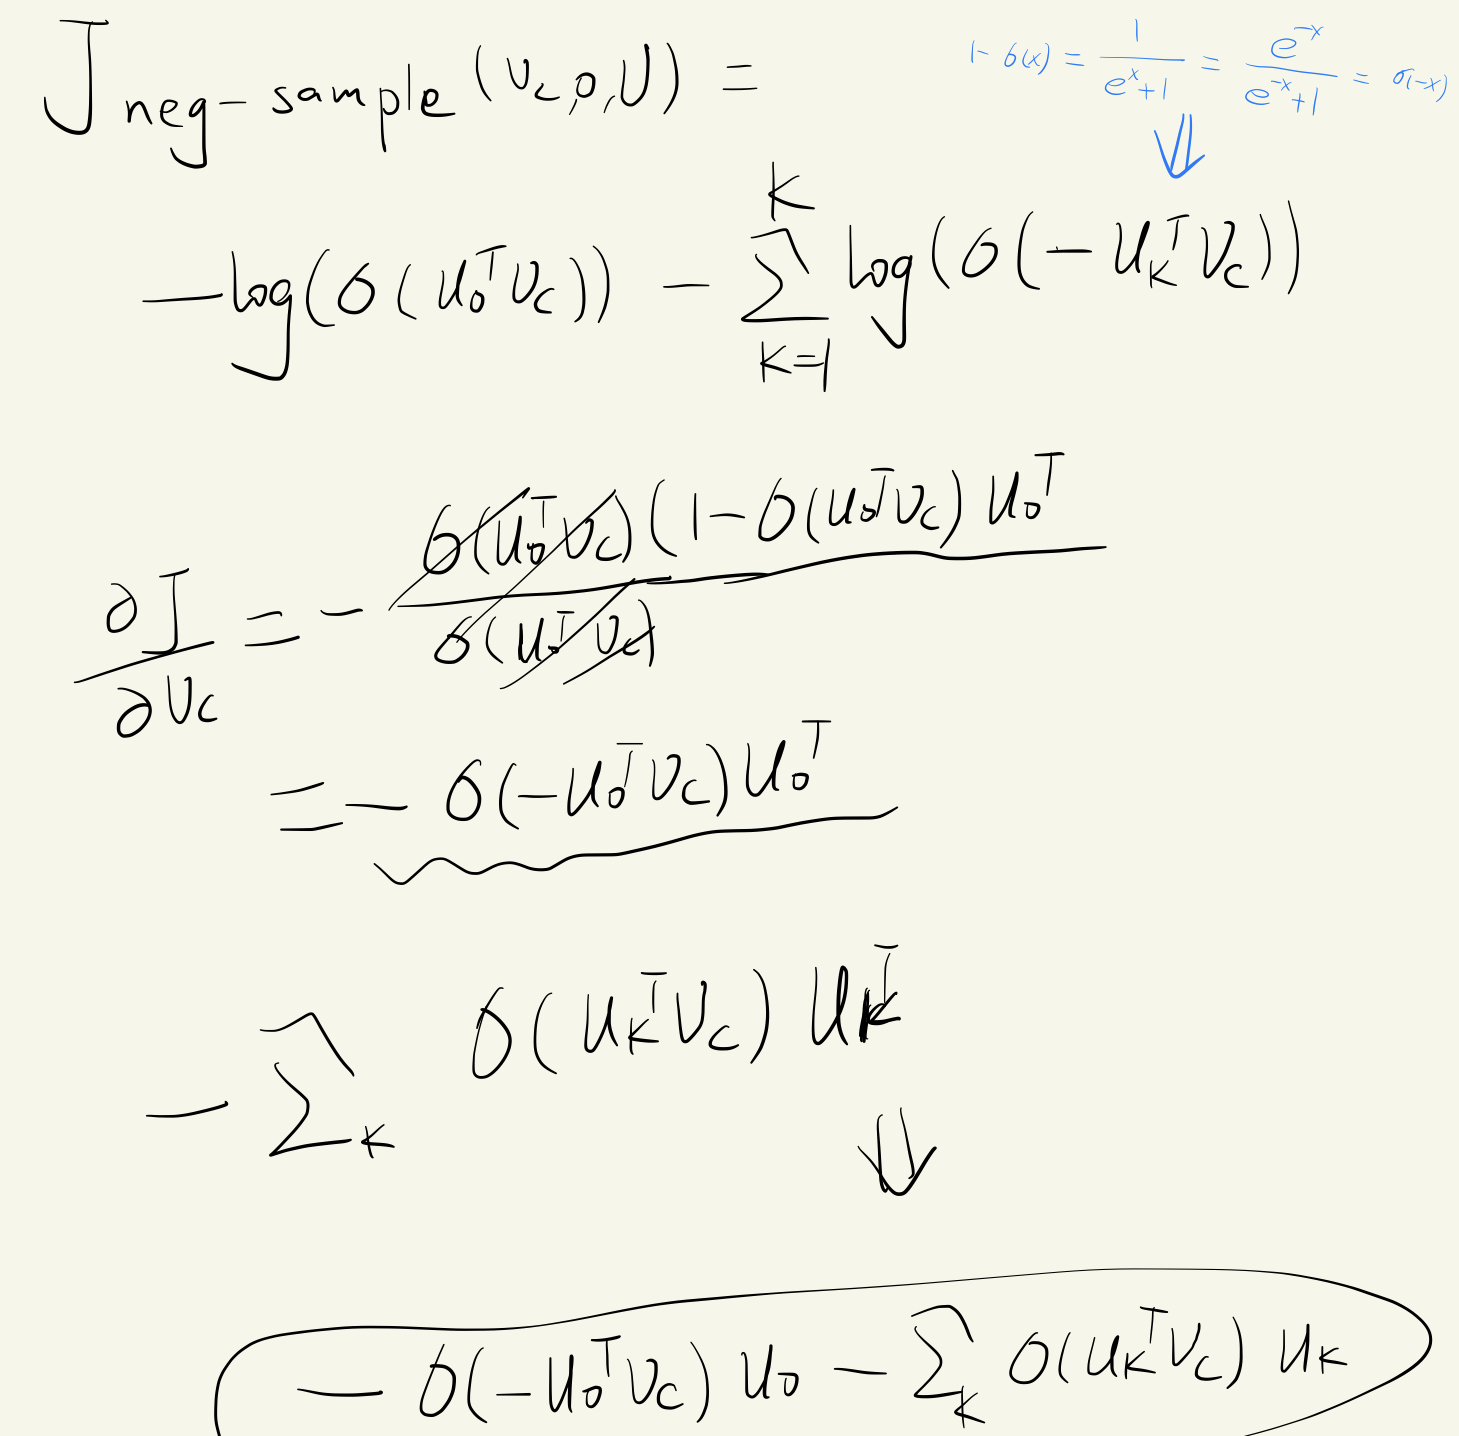 J neg-sample (v_c, o, U) =
1 - σ(x) = 1/(e^x + 1) = e^-x/(e^-x + 1) = σ(-x)
⇓
-log(σ(u_o^T v_c)) - ∑_{k=1}^{K} log(σ(-u_k^T v_c))
∂J/∂v_c = - σ(u_o^T v_c)(1 - σ(u_o^T v_c) u_o^T / σ(u_o^T v_c)
= - σ(-u_o^T v_c) u_o^T
- ∑_k σ(u_k^T v_c) u_k^T
⇓
- σ(-u_o^T v_c) u_o - ∑_k σ(u_k^T v_c) u_k